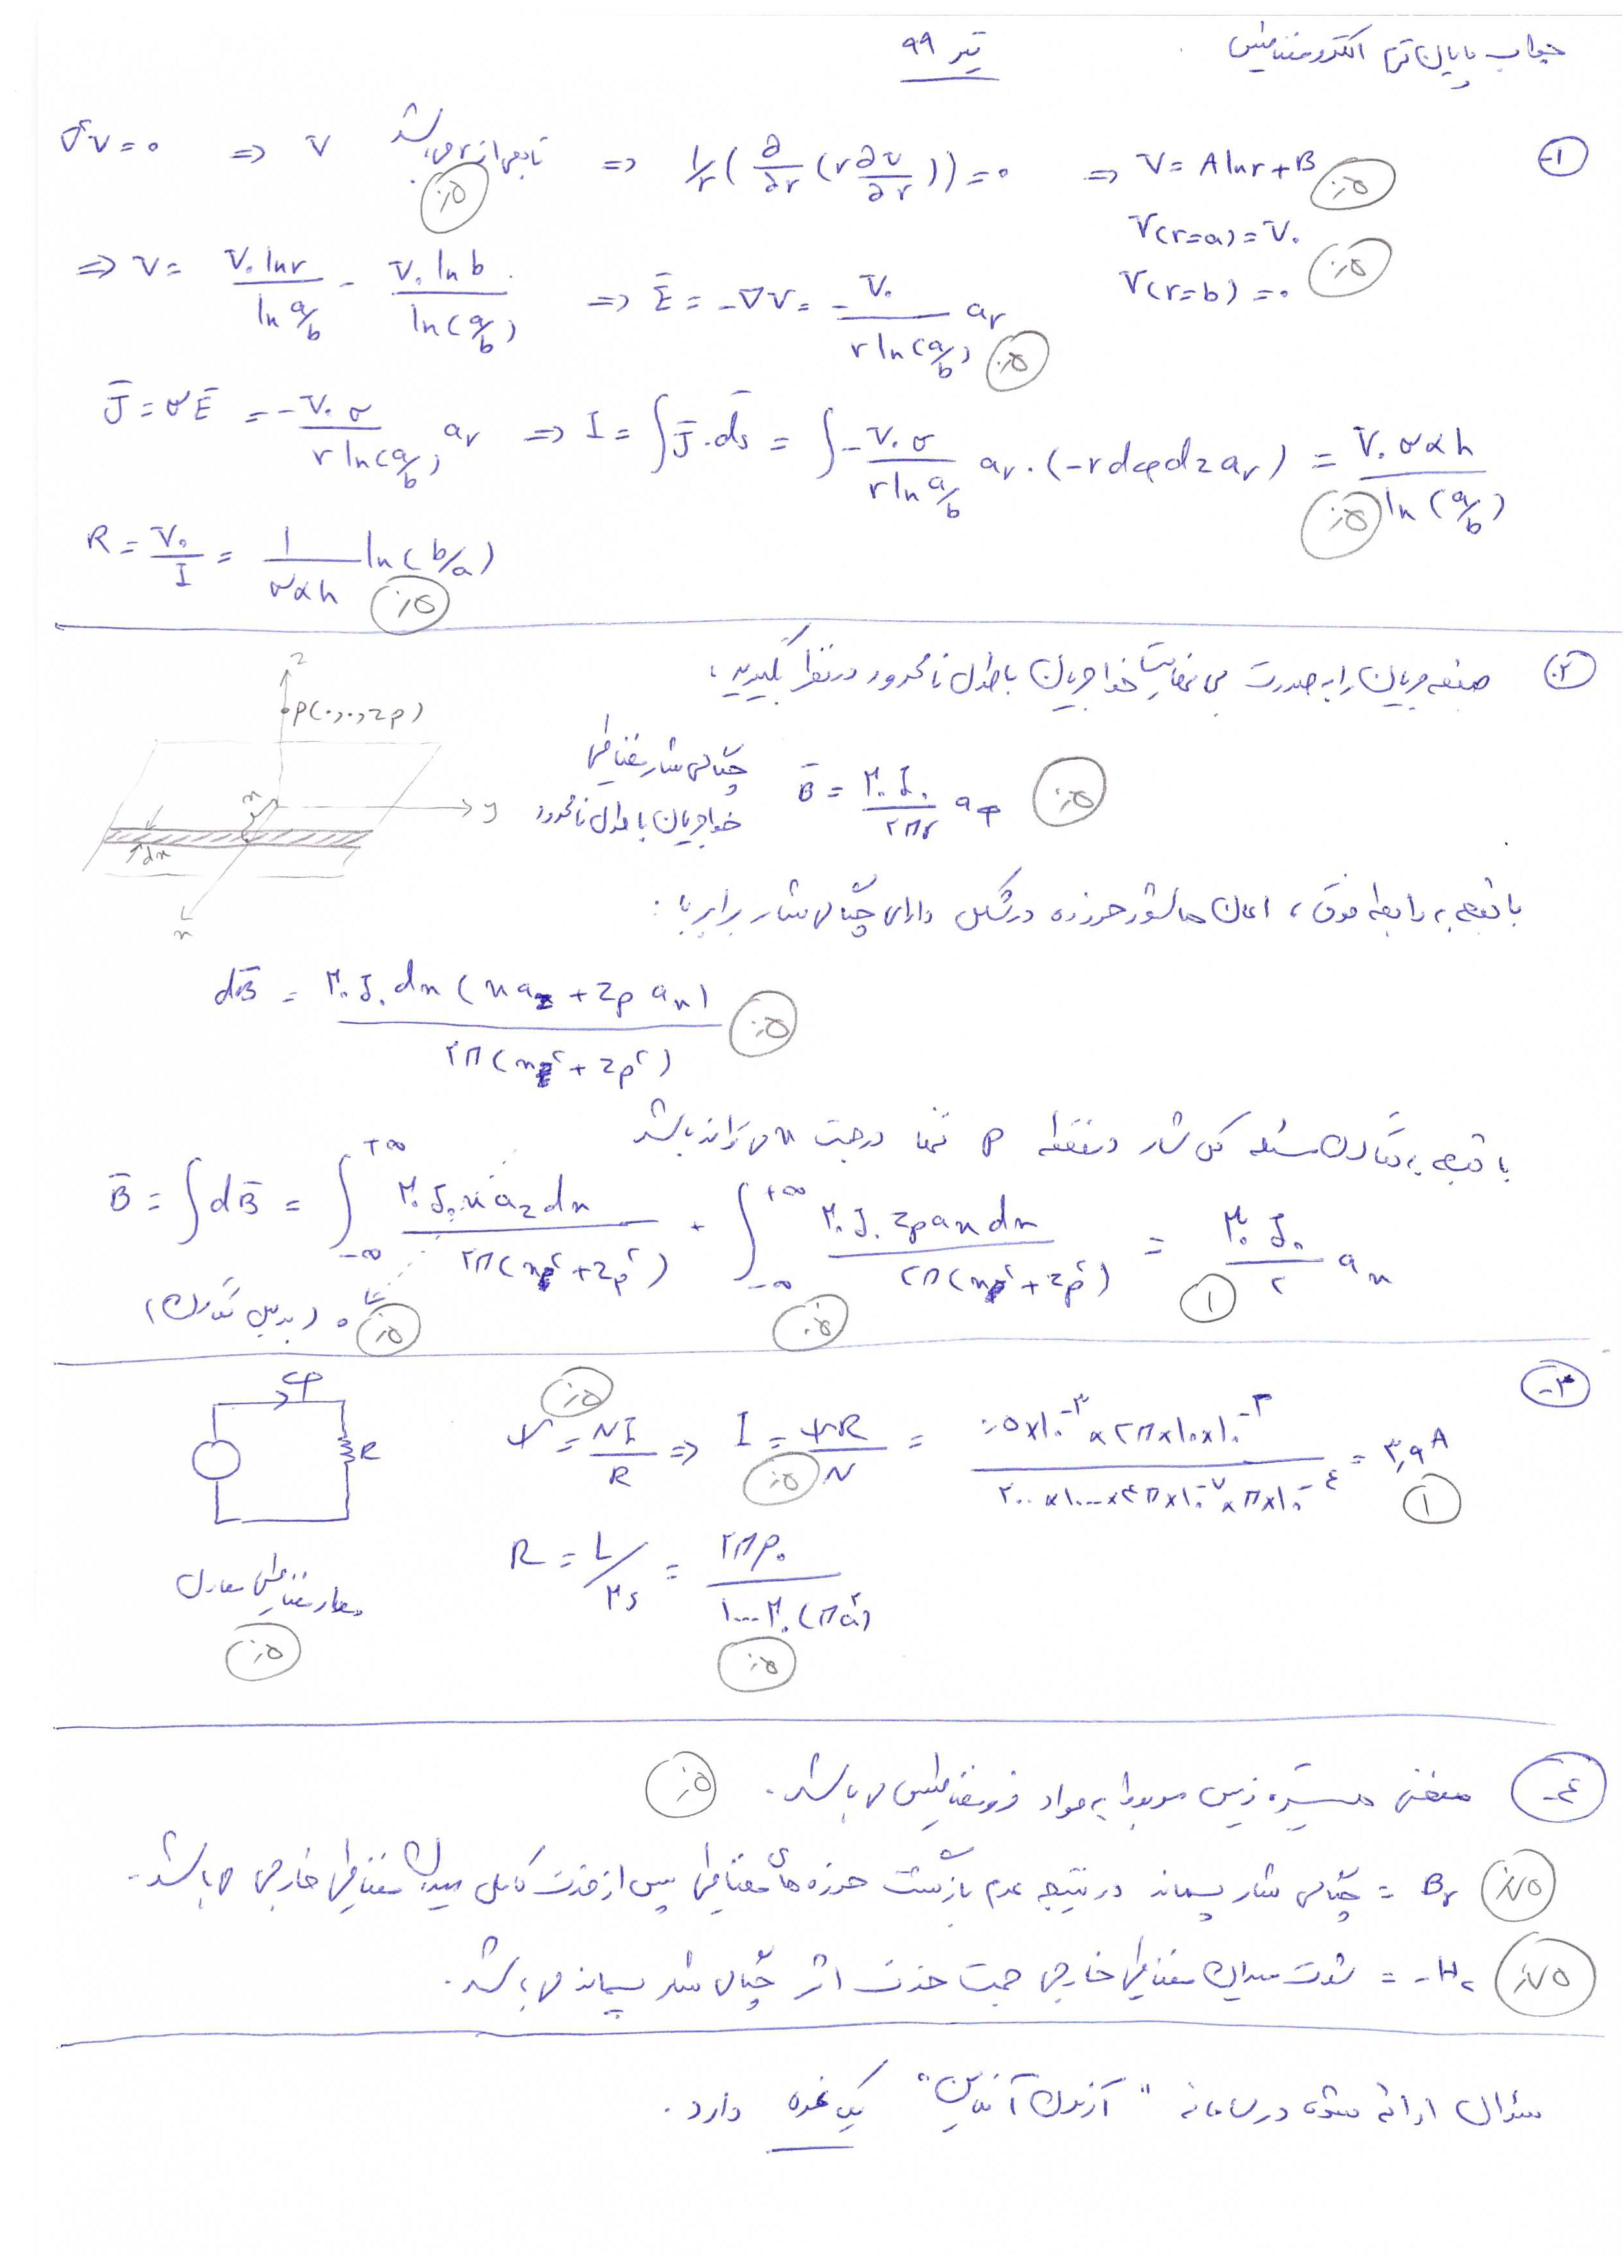 جواب پایان ترم الکترومغناطیس تیر ۹۹
۱-
∇²V = ۰ ⇒ V تابعی از r می باشد ۰/۵ ⇒ 1/r (∂/∂r (r ∂V/∂r)) = ۰ ⇒ V = A ln r + B ۰/۵
V(r=a) = V۰
V(r=b) = ۰ ۰/۵
⇒ V = V۰ ln r / ln a/b - V۰ ln b / ln(a/b) ⇒ Ē = -∇V = - V۰ / r ln(a/b) aᵣ ۰/۵
J̄ = σĒ = - V۰ σ / r ln(a/b) aᵣ ⇒ I = ∫ J̄ . ds̄ = ∫ - V۰ σ / r ln a/b aᵣ . (-r dφ dz aᵣ) = V۰ σ α h / ln(a/b) ۰/۵
R = V۰ / I = 1 / σαh ln(b/a) ۰/۵
۲- صفحه جریان را به صورت بی نهایت خط جریان با طول نامحدود در نظر بگیرید،
z
P(۰,۰,zp)
x
y
dx
x
چگالی شار مغناطیسی
خط جریان با طول نامحدود
B̄ = μ۰ I۰ / ۲πr aφ ۰/۵
با توجه به رابطه فوق، المان هاشور خورده در شکل دارای چگالی شار برابر با :
dB̄ = μ۰ J۰ dx (x a_z + zp aₓ) / ۲π(x² + zp²) ۰/۵
با توجه به تقارن مسئله کل شار در نقطه P تنها در جهت x می تواند باشد
B̄ = ∫ dB̄ = ∫_{-∞}^{+∞} μ۰ J۰ x a_z dx / ۲π(x² + zp²) + ∫_{-∞}^{+∞} μ۰ J۰ zp aₓ dx / ۲π(x² + zp²) = μ۰ J۰ / ۲ aₓ
۰ (بدلیل تقارن) ۰/۵ ۰/۵ ۱
۳-
φ
R
مدار مغناطیسی معادل
۰/۵
۰/۵
ψ = NI / R ⇒ I = ψR / N = ۰/۵×۱۰⁻³ × ۲π×۱۰×۱۰⁻² / ۲۰۰×۱۰۰۰×۴π×۱۰⁻⁷×π×۱۰⁻⁴ = ۳,۹ A
۰/۵ ۱
R = L/μs = ۲πρ۰ / ۱۰۰۰ μ۰ (πa²)
۰/۵
۴- منحنی هیسترزیس مربوط به مواد فرومغناطیس می باشد. ۰/۵
۰/۷۵ Bᵣ = چگالی شار پسماند در نتیجه عدم بازگشت حوزه های مغناطیسی پس از حذف کامل میدان مغناطیسی خارجی می باشد.
۰/۷۵ -H_c = شدت میدان مغناطیسی خارجی جهت حذف اثر چگالی شار پسماند می باشد.
سؤال ارائه شده در سامانه "آزمون آنلاین" یک نمره دارد.